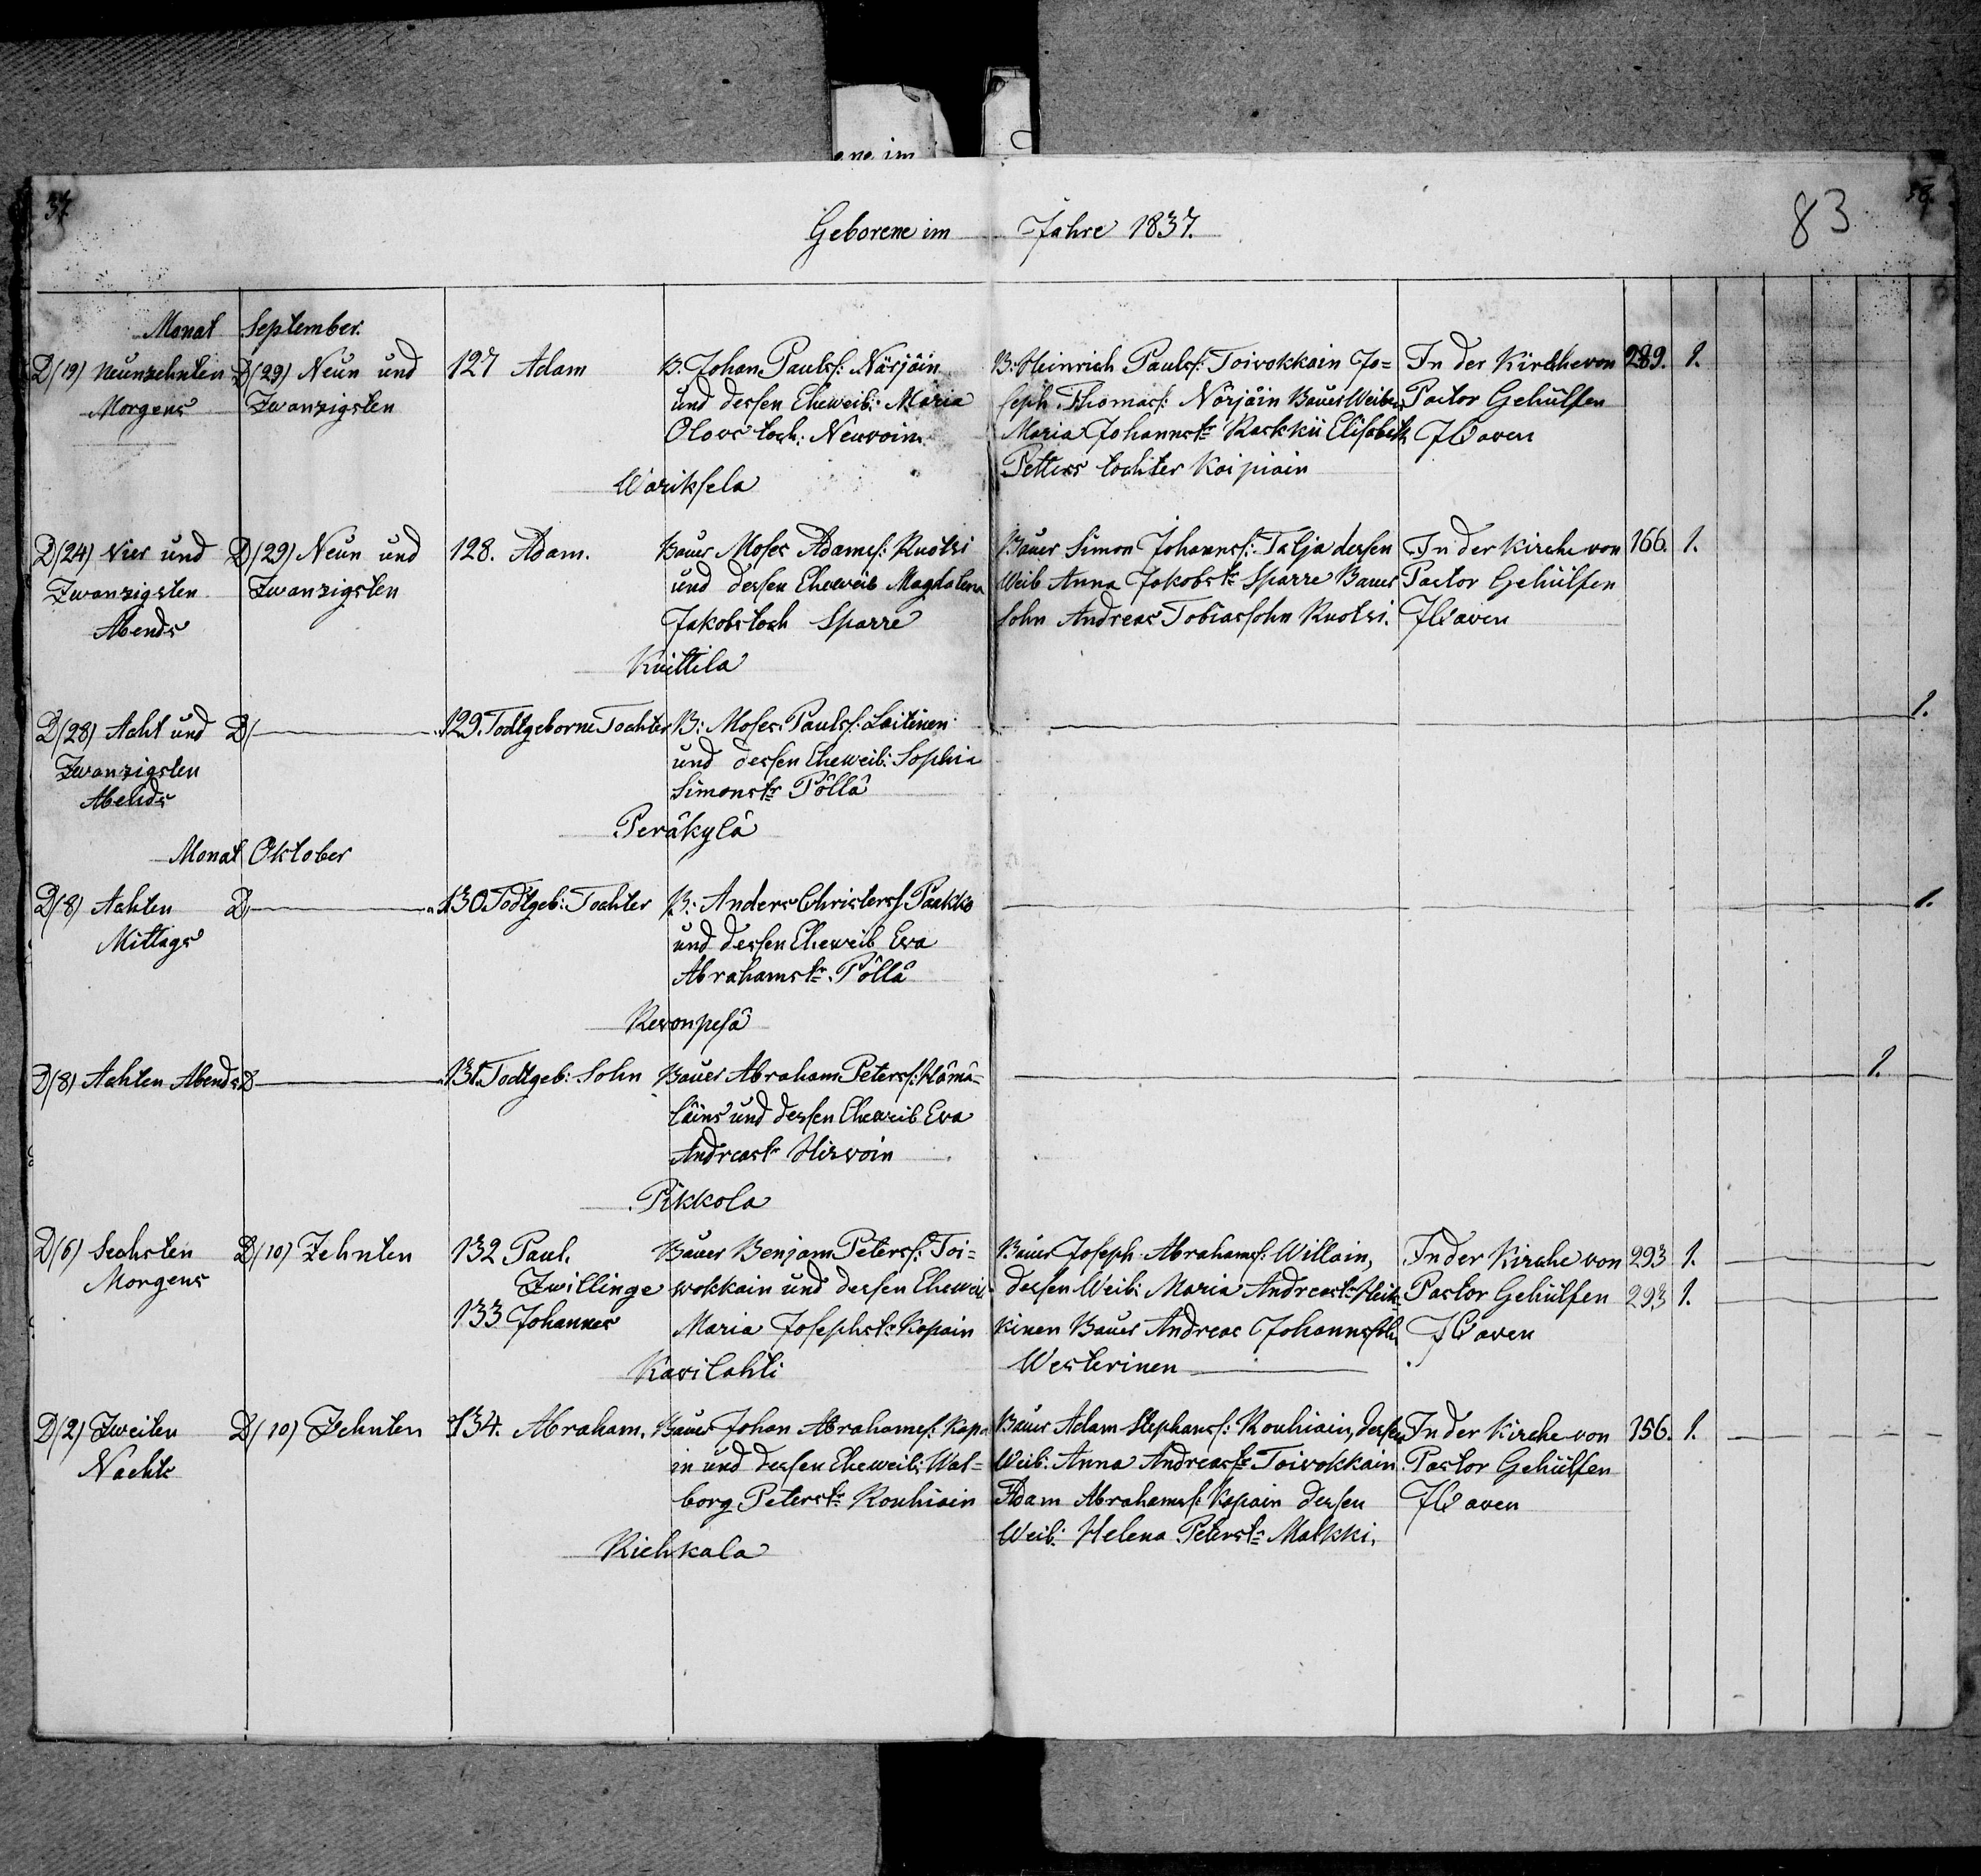 ene im
37.
Geborene im Jahre 1837.
83
Monat September.
D/(19) Neunzehnten
Morgens
D/(29) Neun und
Zwanzigsten
127 Adam
B. Johan Paulsf: Närjäin
und dessen Eheweib: Maria
Olovs toch: Neuvoin
Wäriksela
B: Heinrich Paulsf: Toivokkain Jo=
seph Thomasf: Närjäin Bauer Weiber
Maria Johannstr Raskkii Elisabeth
Petters tochter Kaipiain
In der Kirche von
Pastor Gehülfen
289. 1.
D/(24) Vier und
Zwanzigsten
Abends
D/(29) Neun und
Zwanzigsten
128. Adam.
Bauer Moses Adamsf: Ruotsi
und dessen Eheweib Magdalena
Jakobstoch Sparre
Kuittila
Bauer Simon Johannsf: Talja dessen
Weib Anna Jakobstr Sparre Bauer
Sohn Andreas Tobiassohn Ruotsi.
In der Kirche von
Pastor Gehülfen
166. 1.
D/(28) Acht und
Zwanzigsten
Abends
D/
129. Todtgeborne Tochter
B: Moses Paulsf: Laitinen
und dessen Eheweib: Sophia
Simonstr Pöllä
Peräkylä
1.
Monat Oktober
D/(8) Achten
Mittags
D/
130. Todtgeb: Tochter
B: Anders Christersf Paakko
und dessen Eheweib Eva
Abrahamstr. Pöllä
Revonpesä
1.
D/(8) Achten Abends
D
131. Todtgeb: Sohn
Bauer Abraham Petersf: Hämä=
läins und dessen Eheweib Eva
Andreastr Hirvoin
Pikkola
1.
D/(6) Sechsten
Morgens
D/(10) Zehnten
132 Paul.
Zwillinge
133 Johannes
Bauer Benjam Petersf: Toi=
wokkain und dessen Eheweib
Maria Josephstr Kopain
Kasilahti
Bauer Joseph Abrahamsf: Willain,
dessen Weib: Maria Andreastr Heik=
kinen Bauer Andreas Johannsohn
Westerinen
In der Kirche von
Pastor Gehülfen
293 1.
293 1.
D/(2) Zweiten
Nachts
D/(10) Zehnten
134. Abraham.
Bauer Johan Abrahamsf: Kopa
in und dessen Eheweib: Wal=
borg Peterstr Rouhiain
Riehkala
Bauer Adam Stephansf: Rouhiain, dessen
Weib: Anna Andreastr Toivokkain
Adam Abrahamsf: Kopain dessen
Weib: Helena Peterstr Malkki.
In der Kirche von
Pastor Gehülfen
156. 1.